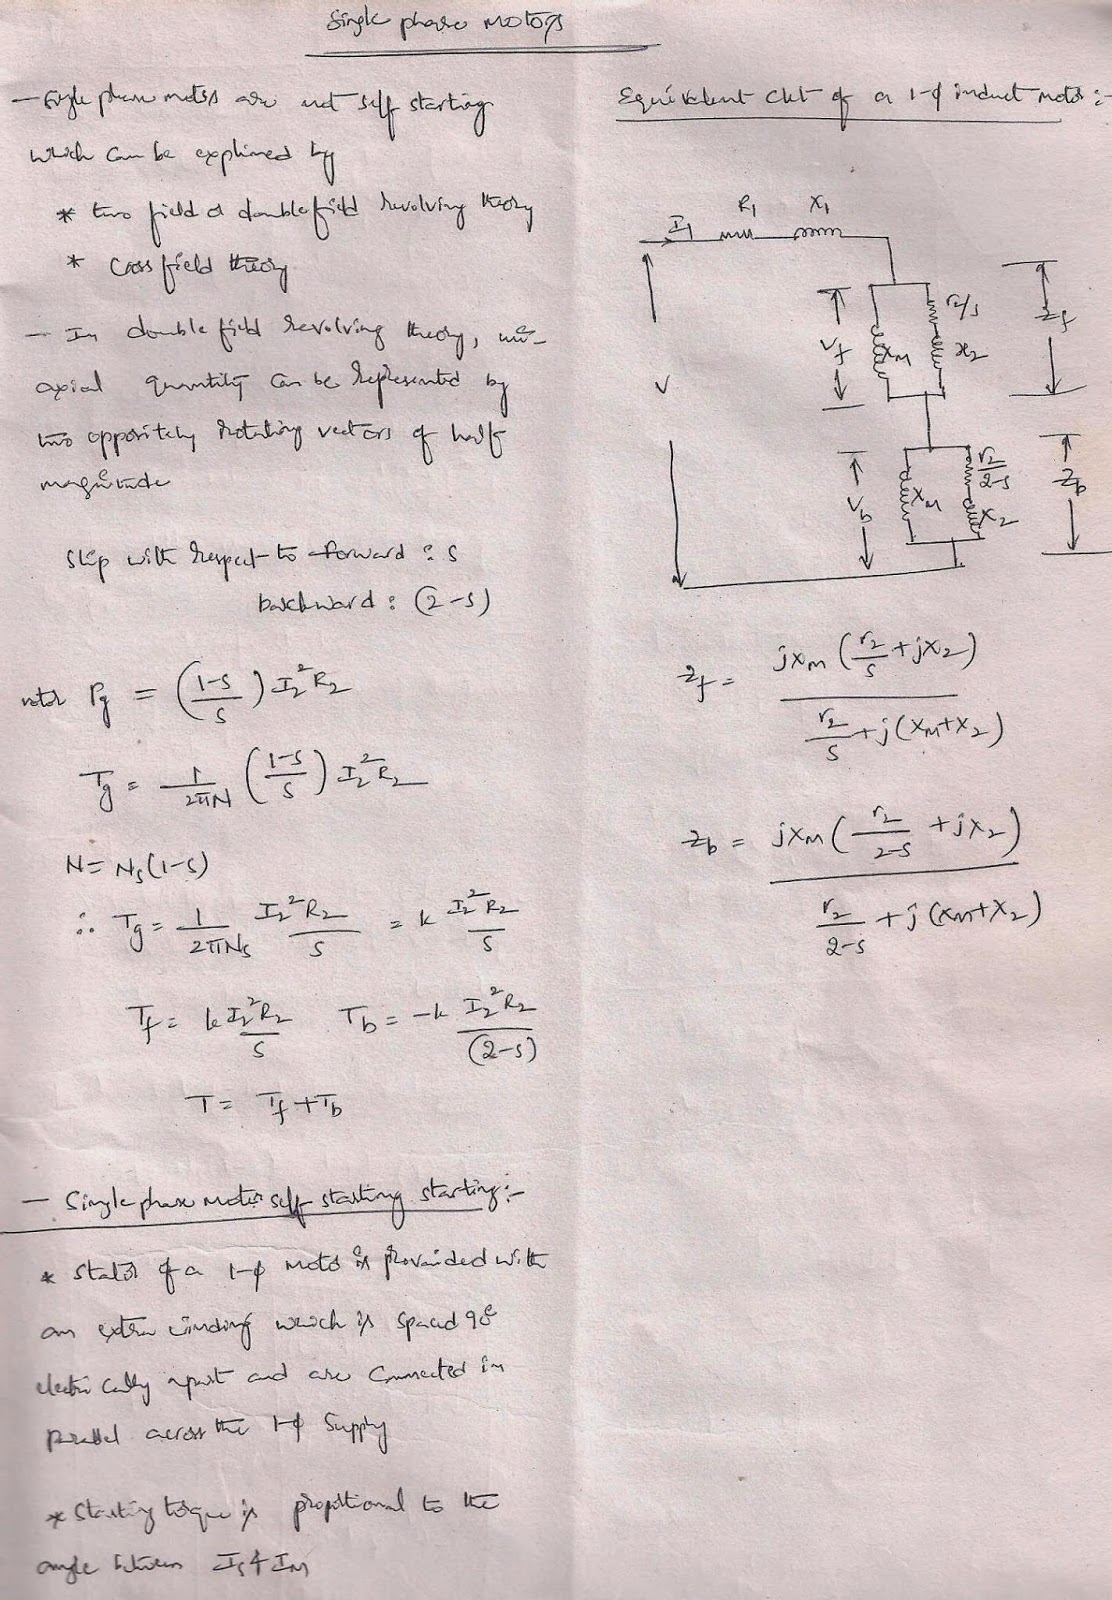 Single phase motors
- Single phase motors are not self starting
which can be explained by
* two field or double field revolving theory
* Cross field theory
- In double field revolving theory, uni-
axial quantity can be represented by
two oppositely rotating vectors of half
magnitude
Slip with respect to forward : s
backward : (2-s)
rotor Pg = ((1-s)/s) I₂²R₂
Tg = 1/(2πN) ((1-s)/s) I₂²R₂
N = Ns(1-s)
∴ Tg = 1/(2πNs) I₂²R₂/s = k I₂²R₂/s
Tf = k I₂²R₂/s Tb = -k I₂²R₂/(2-s)
T = Tf + Tb
- Single phase motor self starting starting:-
* Stator of a 1-φ motor is provided with
an extra winding which is spaced 90°
electrically apart and are connected in
parallel across the 1-φ supply
* Starting torque is proportional to the
angle between Is & Im
Equivalent ckt of a 1-φ induct motor :-
I₁ R₁ X₁
V
Vf XM r2/s x2 Zf
Vb XM r2/(2-s) X2 Zb
Zf = jXM (r2/s + jX2) / (r2/s + j(XM+X2))
Zb = jXM (r2/(2-s) + jX2) / (r2/(2-s) + j(XM+X2))